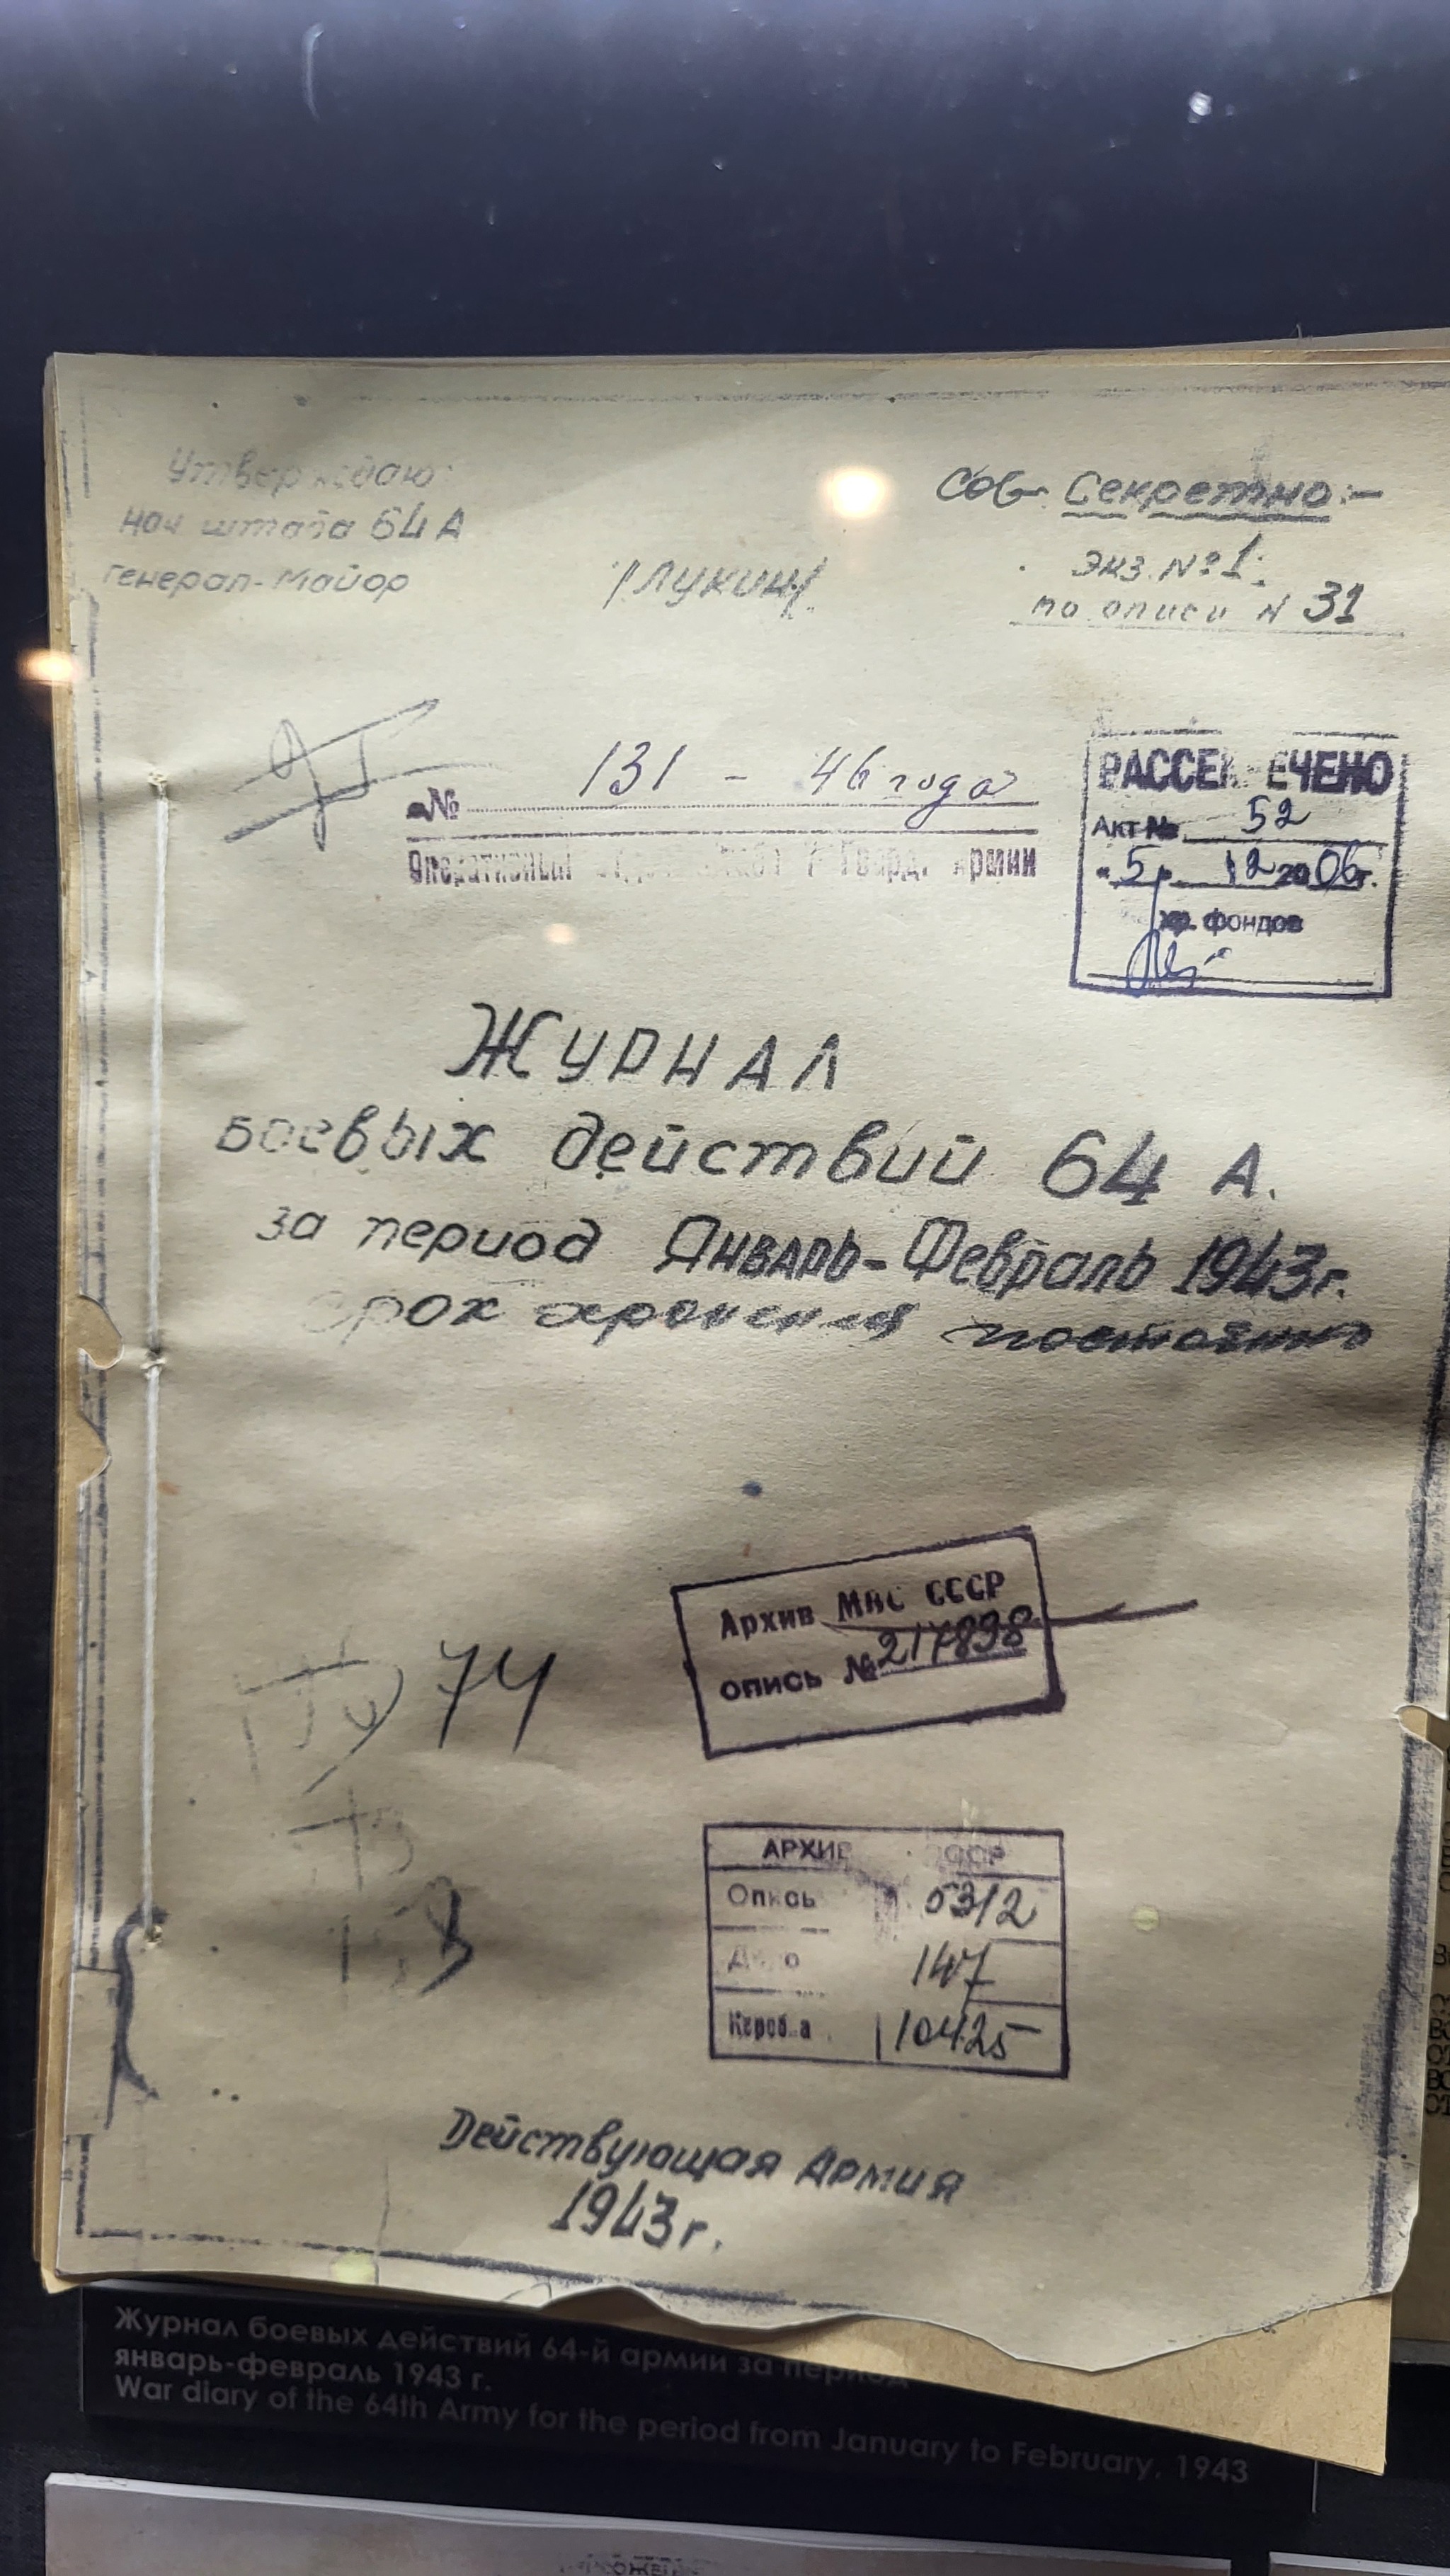 Утверждаю:
Нач штаба 64 А
Генерал-Майор /Лукин/.
Сов. Секретно:-
Экз. №1.
по описи N 31
№ 131 - 46 года
Оперативный Гвард. Армии
РАССЕКРЕЧЕНО
Акт № 52
"5" 12 2006г.
хр. фондов
ЖУРНАЛ
боевых действий 64 А.
за период Январь-Февраль 1943г.
срок хранения постоянно
Архив МВС СССР
опись № 217898
74
АРХИВ СССР
Опись 5312
Дело 147
Коробка 10425
Действующая Армия
1943г.
Журнал боевых действий 64-й армии за период
январь-февраль 1943 г.
War diary of the 64th Army for the period from January to February, 1943